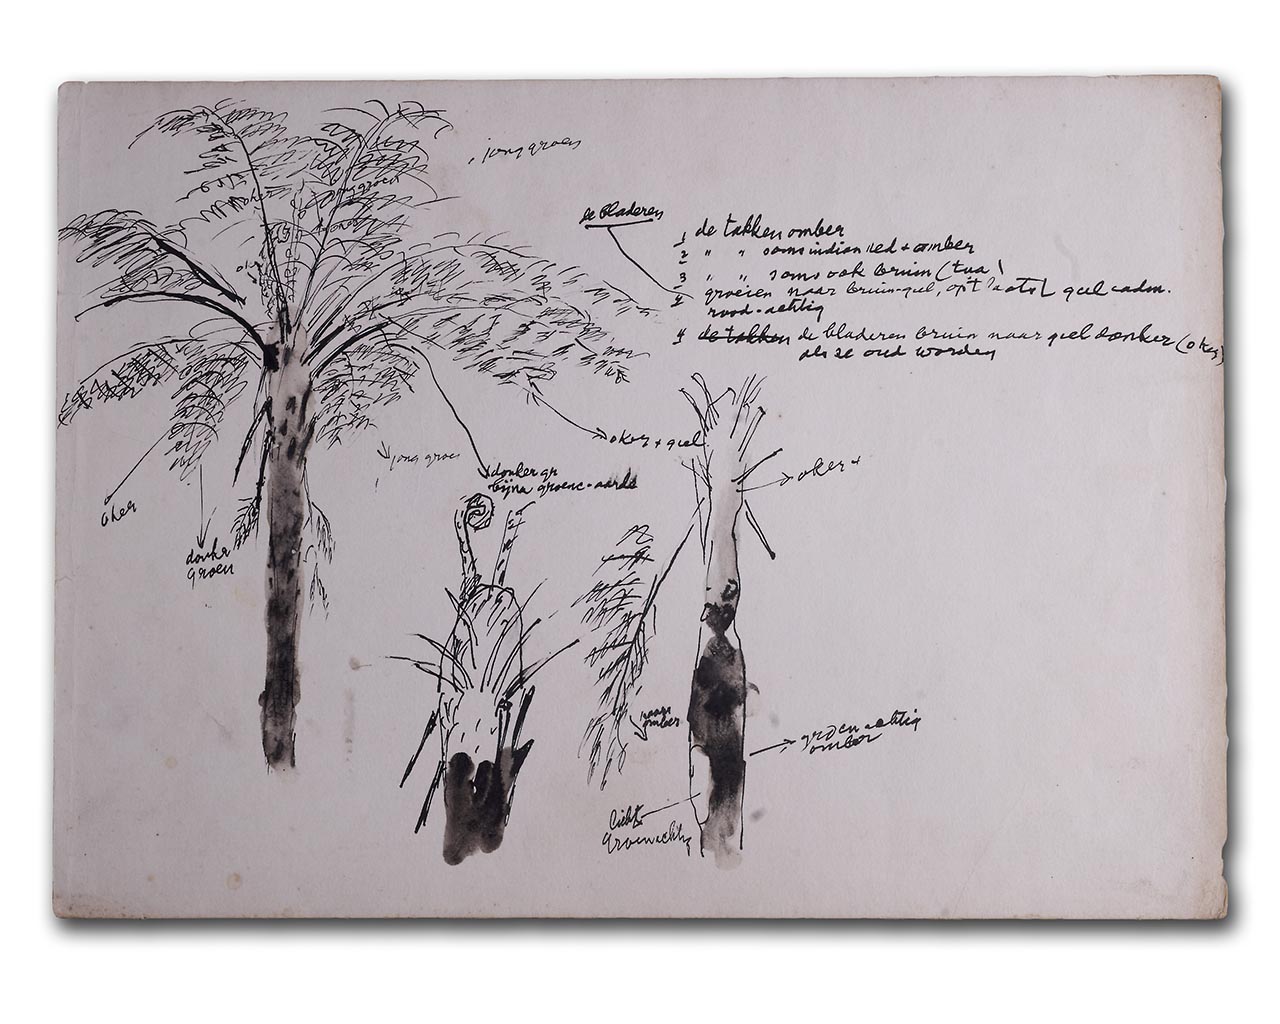 jong groen
oker
jong groen
de bladeren
1 de takken omber
2 " " soms indian red + omber
3 " " soms ook bruin (tua)
4 groeien naar bruin-geel, op't laatst geel cadm.
rood-achtig
4 de takken de bladeren bruin naar geel donker (oker)
als ze oud worden
oker + geel
oker +
jong groen
donker gr
bijna groene-aarde
oker
donker
groen
naar
omber
groenachtig
omber
licht
groenachtig